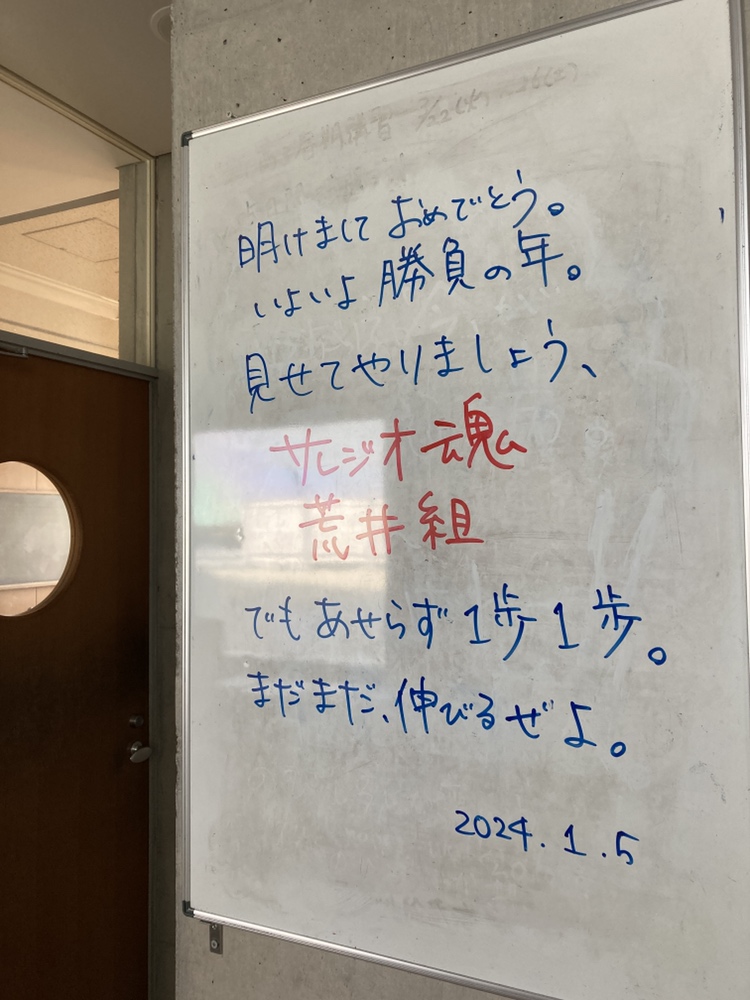 明けまして おめでとう。
いよいよ 勝負の年。
見せてやりましょう、
サレジオ魂
荒井組
でも あせらず 1歩 1歩。
まだまだ、伸びるぜよ。
2024.1.5